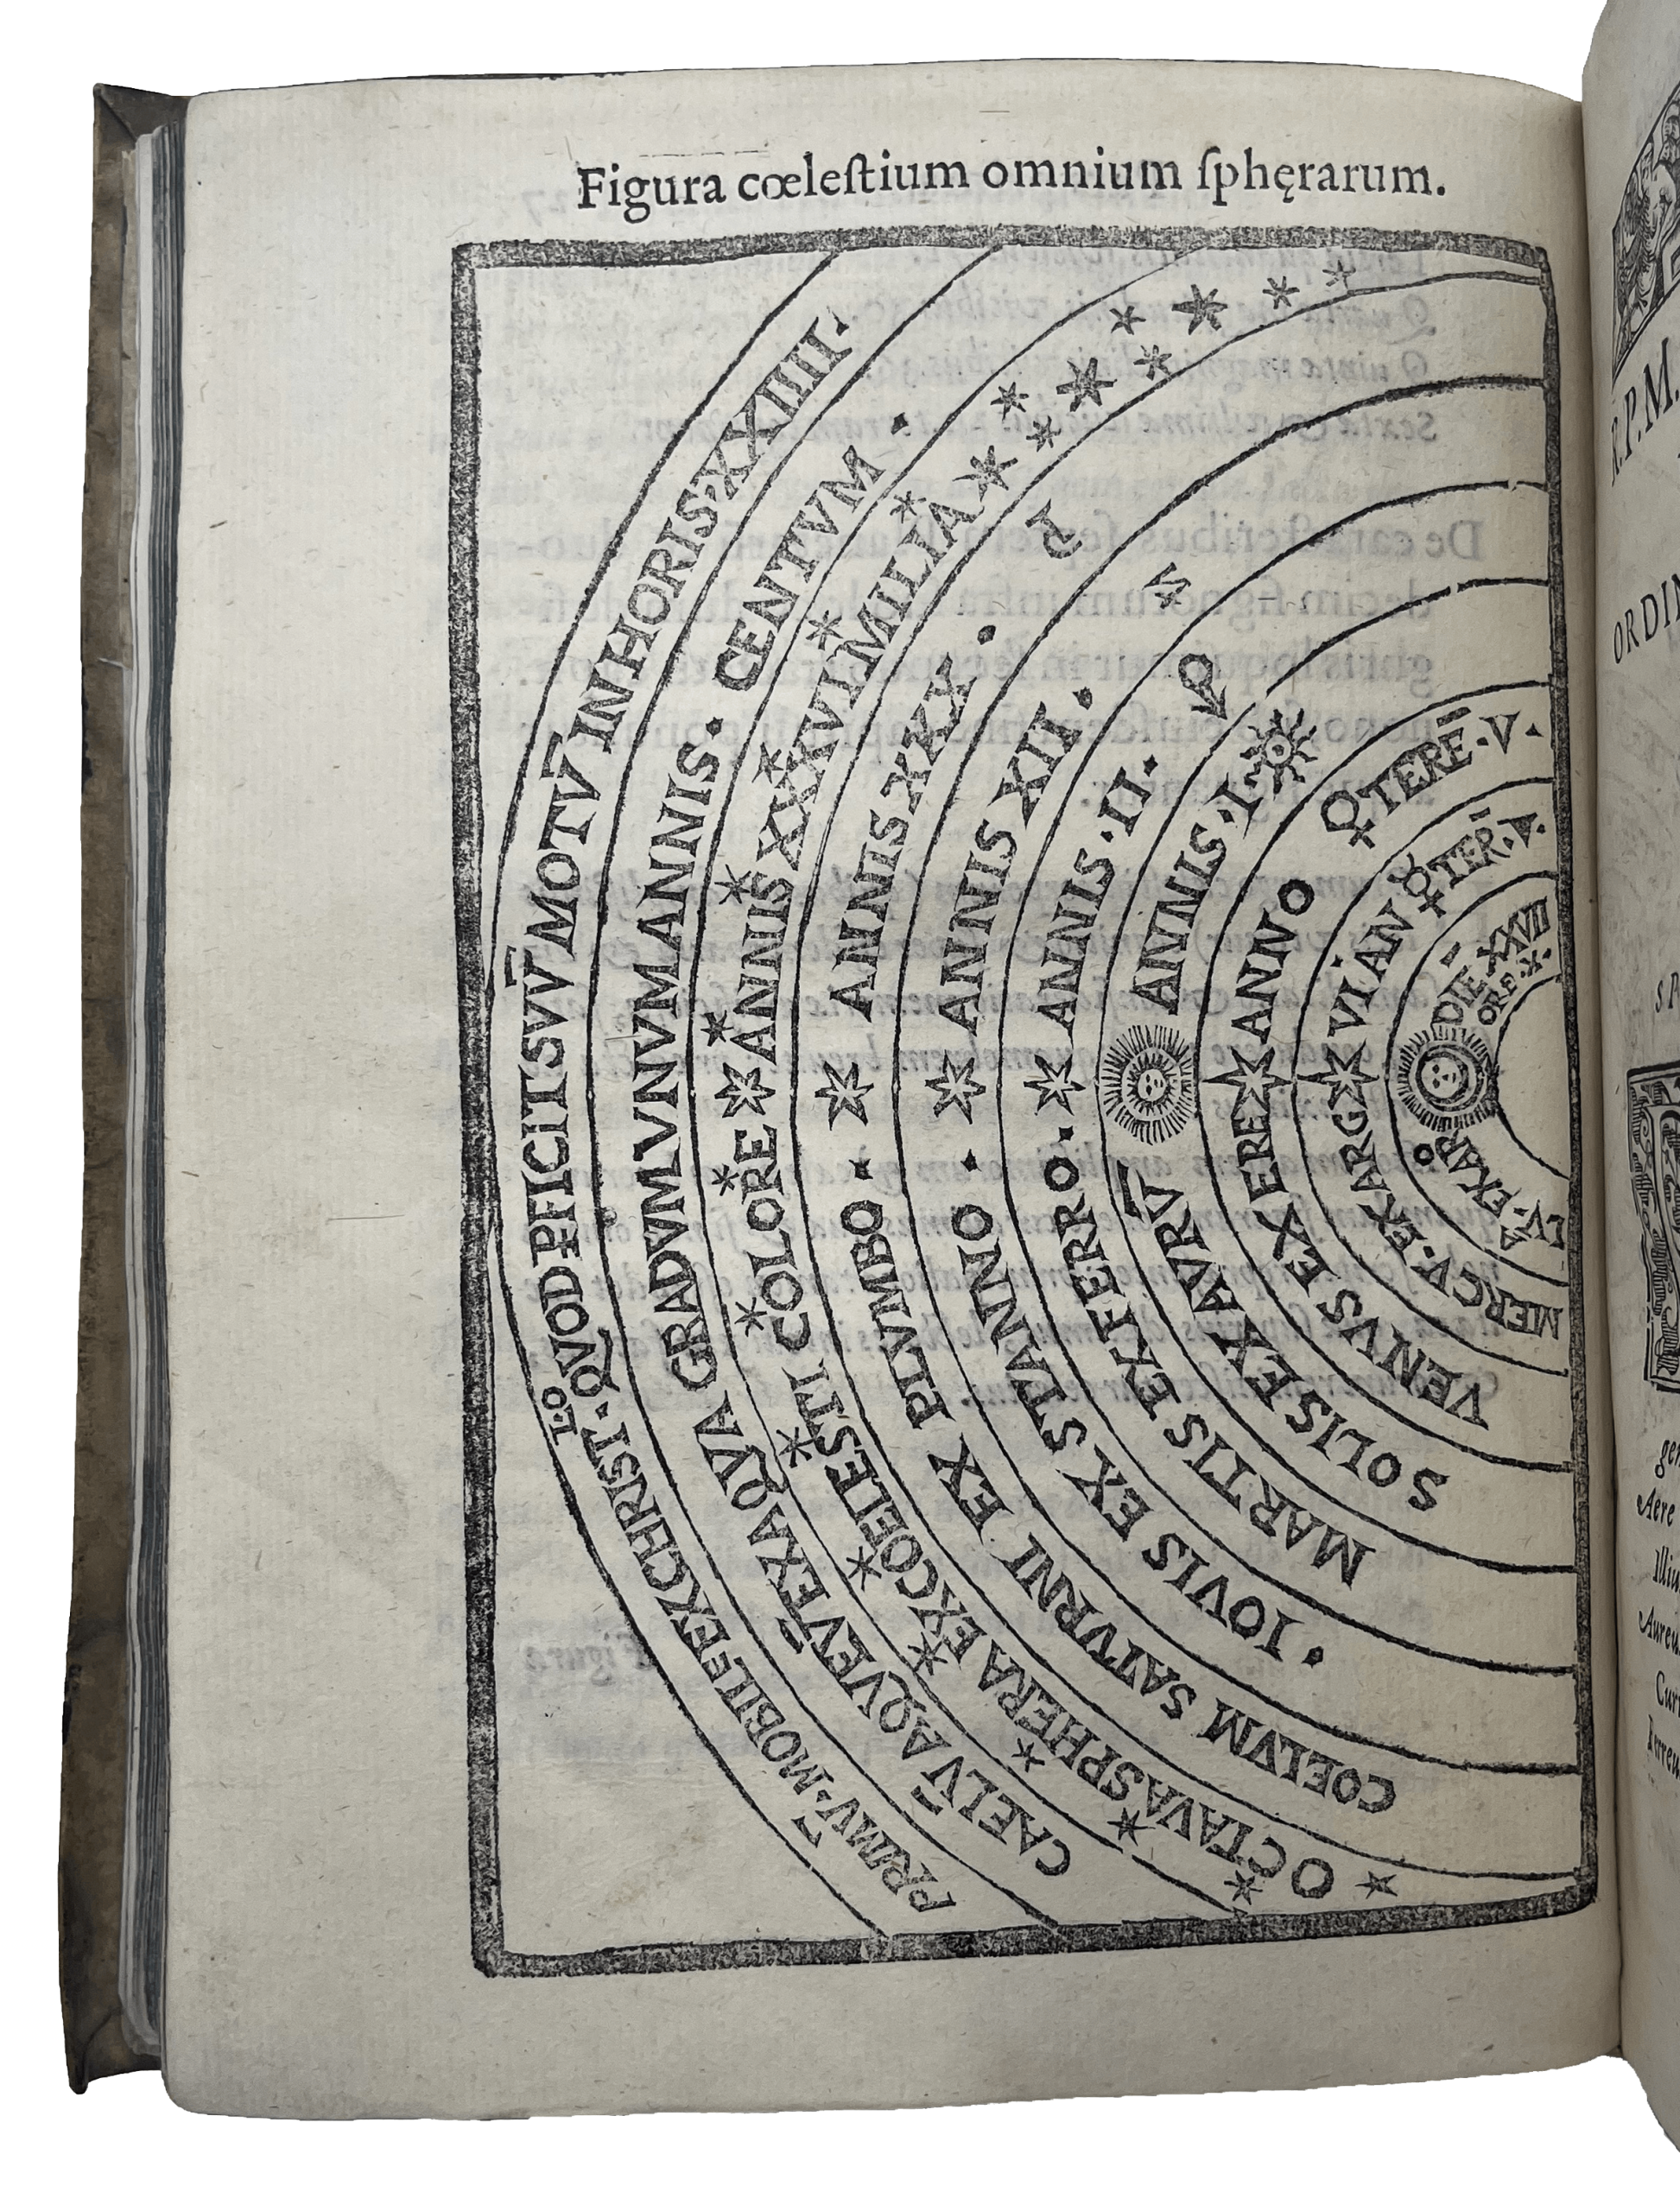 Figura cœleſtium omnium ſphęrarum.
PRIMV̄·MOBILE EX CHRIST·LO· QVOD PFICIT SVV̄ MOTV̄ IN HORIS·XXIIII.
CAELV̄ AQVEV̄ EX AQVA GRADVM VNVM ANNIS· CENTVM ·
OCTAVA SPHERA EX COELESTI COLORE ANNIS XXXVI MILIA
COELVM SATVRNI EX PLVMBO · ANNIS XXX ·
IOVIS EX STANNO · ANNIS XII ·
MARTIS EX FERRO · ANNIS·II·
SOLIS EX AVRV̄ ANNIS·I·
VENVS EX ERE ANNO ♀ TERĒ·V·
MERCV·EX ARG VIAN ☿ TER·A·
LV·EX AR DIE XXVII
ORE·X·
R.P.M.
ORDIN
gen
Aere
Illiu
Aureu